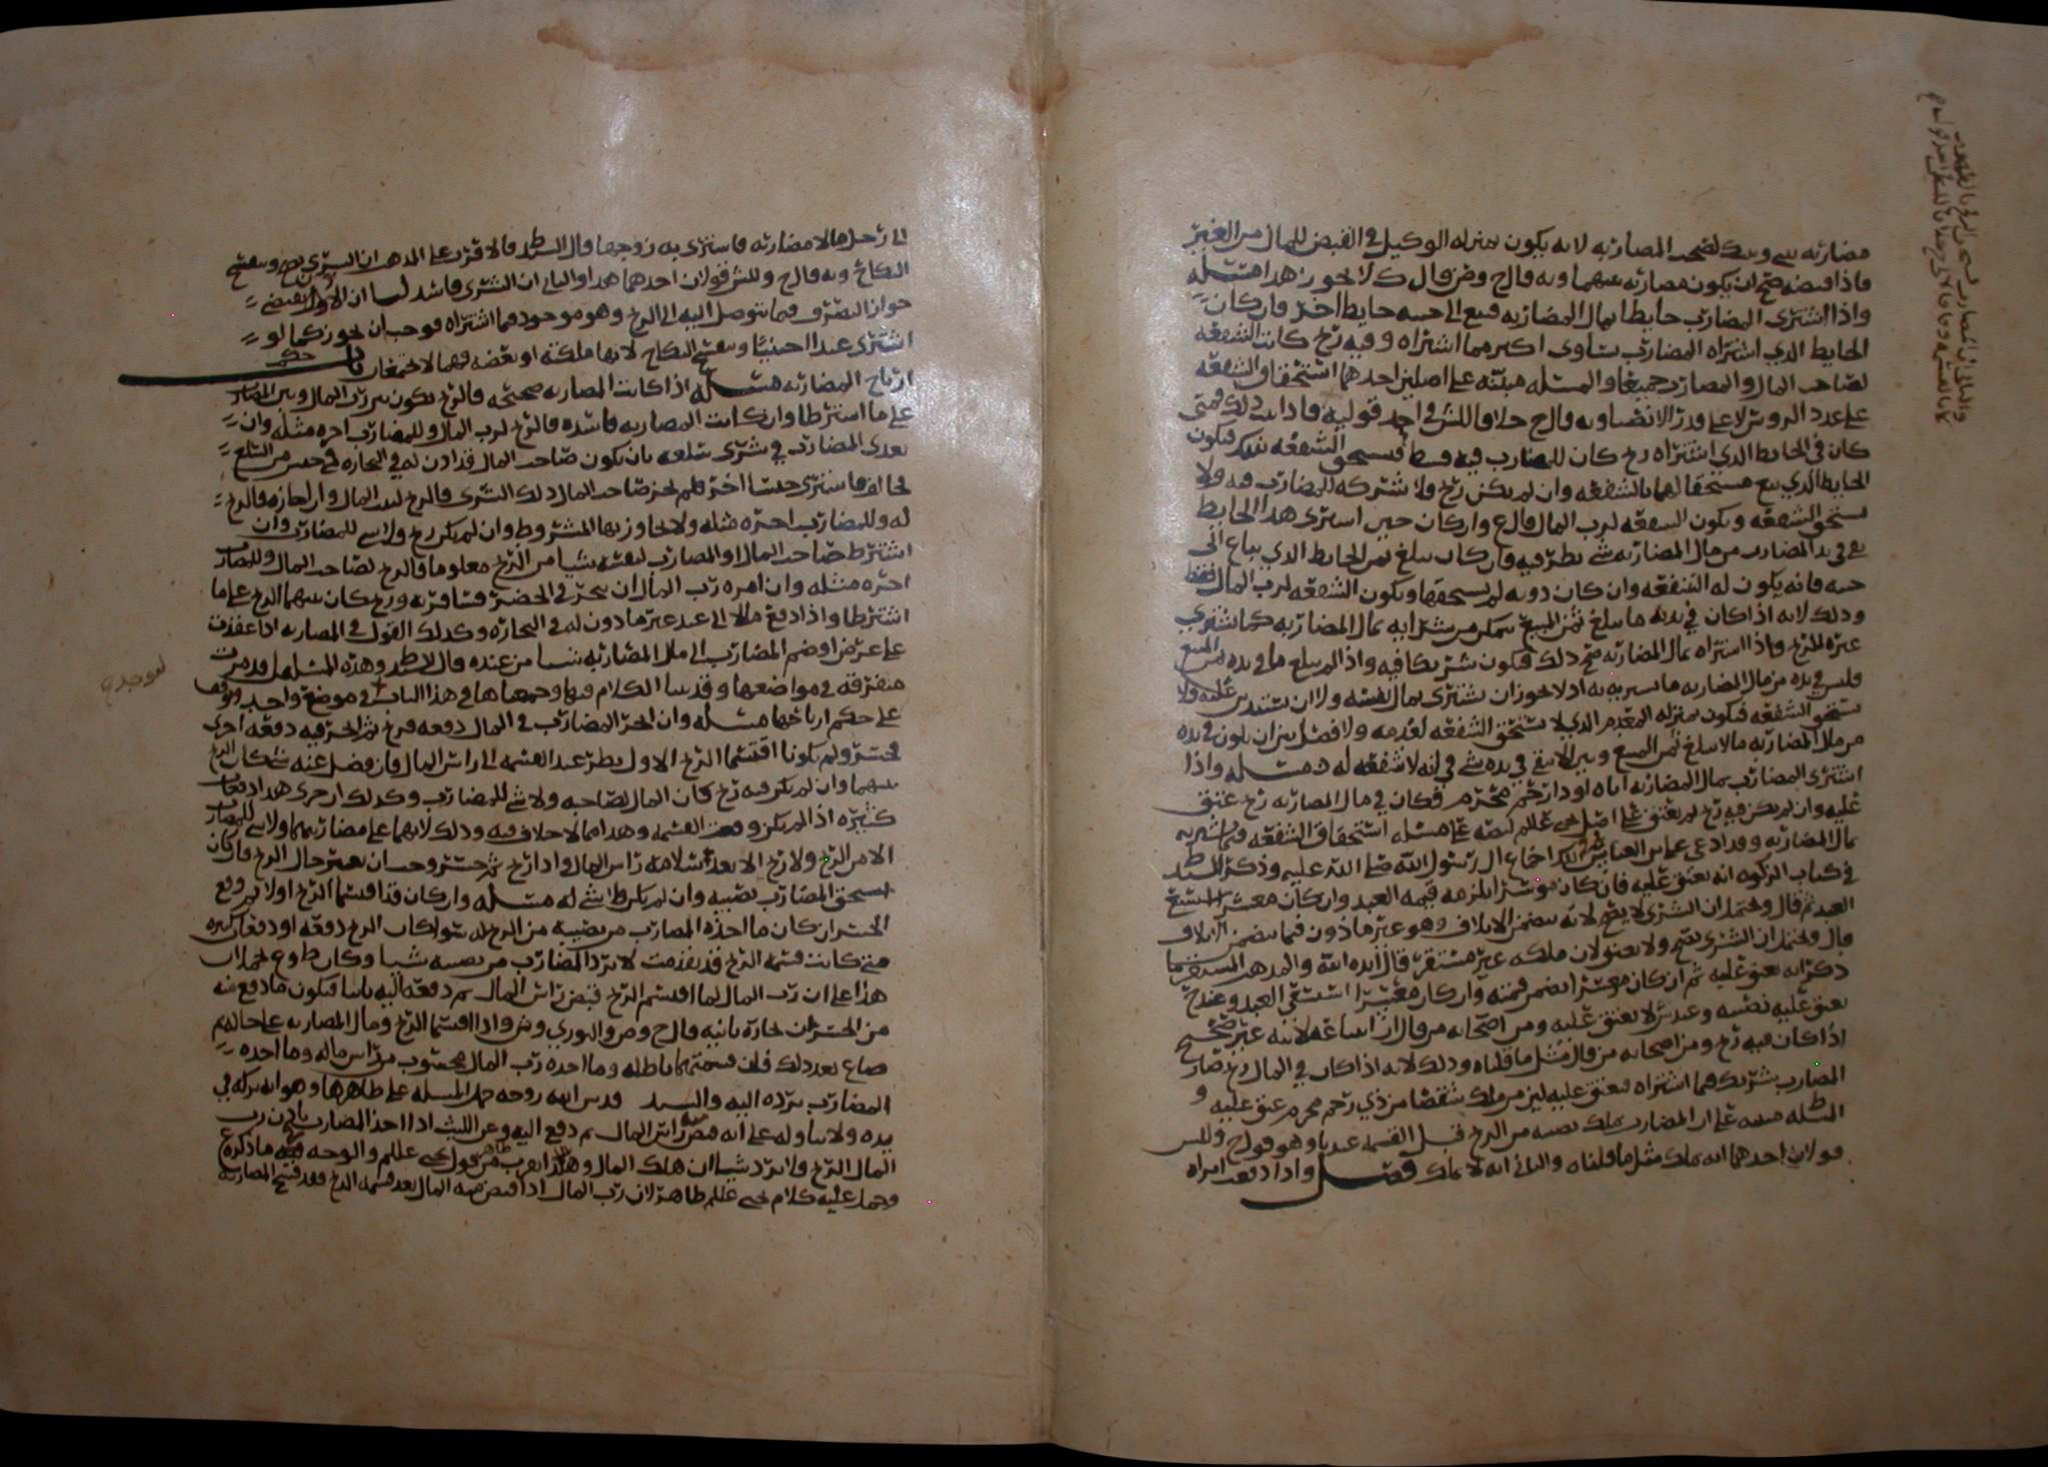 مضاربه بيني وبينك لصحت المضاربه لانه يكون بمنزله الوكيل في القبض للمال من الغير
فاذا قبضه صح ان يكون مضاربه بينهما وبه قال ح وش قال ك لا يجوز هذا مسله
واذا اشترى المضارب حايطا بمال المضاربه فبيع الى جنبه حايط اخر فان كان
الحايط الذي اشتراه المضارب يساوى اكثر مما اشتراه وفيه ربح كانت الشفعه
لصاحب المال والمضارب جميعا والمسله مبنيه على اصلين احدهما استحقاق الشفعه
على عدد الروس لا على قدر الانصبا وبه قال ح خلافا للش في احد قوليه فاذا ثبت ذلك فمتى
كان في الحايط الذي اشتراه ربح كان للمضارب فيه قسط فيستحق الشفعه بذلك فيكون
الحايط الذي بيع مستحقا لهما بالشفعه وان لم يكن ربح ولا شركه للمضارب فيه ولا
يستحق الشفعه ويكون الشفعه لرب المال قال ع وان كان حين اشترى هذا الحايط
بقي في يد المضارب من مال المضاربه شي نظر فيه فان كان يبلغ ثمن الحايط الذي يباع الى
جنبه فانه يكون له الشفعه وان كان دونه لم يستحقها ويكون الشفعه لرب المال فقط
وذلك لانه اذا كان في يده ما يبلغ ثمن المبيع تمكن من شرايه بمال المضاربه كما يشتري
غيره للربح واذا اشتراه بمال المضاربه صح ذلك فيكون شريكا فيه واذا لم يبلغ ما في يده ثمن المبيع
فليس في يده من مال المضاربه ما يشتريه به اذ لا يجوز ان يشتري بمال نفسه ولا ان يستدين عليه ولا
يستحق الشفعه فيكون بمنزله المعدم الذي لا يستحق الشفعه لعدمه ولا فصل بين ان يكون في يده
من مال المضاربه ما لا يبلغ ثمن المبيع وبين الا يبقى في يده شي في انه لا شفعه له مسله واذا
اشترى المضارب بمال المضاربه اباه او ذا رحم محرم فكان في مال المضاربه ربح عتق
عليه وان لم يكن فيه ربح لم يعتق على اصل يحيى علم كنصه على مسله استحقاق الشفعه فيما يشتريه
بمال المضاربه وقد ادعى اجماع ال رسول الله صلى الله عليه وذكر السيد ط
في كتاب الزكوه انه يعتق عليه فان كان موسرا لزمه قيمه العبد وان كان معسرا استسعى
العبد ثم قال ويحتمل ان الشرى لا يصح لانه يتضمن الاتلاف وهو غير ماذون فيما يتضمن الاتلاف
قال ويحتمل ان الشرى يصح ولا يعتق لان ملكه غير مستقر قال ايده الله والمذهب المستقر ما
ذكر انه يعتق عليه ثم ان كان موسرا ضمن قيمته وان كان معسرا استسعى العبد وعند ح
يعتق عليه نصيبه وعند ش لا يعتق عليه ومن اصحابه من قال ان ابتياعه لابيه غير صحيح
اذا كان فيه ربح ومن اصحابه من قال مثل ما قلناه وذلك لانه اذا كان في المال ربح صار
المضارب شريكه فيما اشتراه فيعتق عليه لان من ملك شقصا من ذي رحم محرم عتق عليه و
المسله مبنيه على ان المضارب يملك نصيبه من الربح قبل القسمه عندنا وهو قول ح وللش
قولان احدهما انه يملك مثل ما قلناه والثاني انه لا يملك فصل واذا دفعت امراه
الى رجل مالا مضاربه فاشترى به زوجها قال السيد ط فالاقرب على المذهب ان الشرى يصح وينفسخ
النكاح وبه قال ح وللش قولان احدهما هذا والثاني ان الشرى فاسد لنا ان الاذن يقتضي
جواز التصرف فيما يتوصل اليه الى الربح وهو موجود فيما اشتراه فوجب ان يجوز كما لو
اشترى عبدا اجنبيا وينفسخ النكاح لانها ملكته او بعضه فهما لا يجتمعان باب حكم
ارباح المضاربه مسله اذا كانت المضاربه صحيحه فالربح يكون بين رب المال وبين المضارب
على ما اشترطا وان كانت المضاربه فاسده فالربح لرب المال وللمضارب اجره مثله وان
تعدى المضارب في شرى سلعه بان يكون صاحب المال قد اذن له في التجاره في جنس من السلع
فخالف فاشترى جنسا اخر فلم يجز صاحب المال ذلك الشرى فالربح لبيت المال وان اجازه فالربح
له وللمضارب اجره مثله ولا يجاوز بها المشروط وان لم يكن ربح ولا شي للمضارب وان
اشترط صاحب المال او المضارب لنفسه شيا من الربح معلوما فالربح لصاحب المال وللمضارب
اجره مثله وان امره رب المال ان يتجر في الحضر فسافر به وربح كان بينهما الربح على ما
اشترطا واذا دفع مالا الى عبد غير ماذون له في التجاره وكذلك القول في المضاربه اذا عقدت
على عرض او ضم المضارب الى مال المضاربه شيا من عنده قال السيد ط وهذه المسايل قد مرت
متفرقه في مواضعها وقد بينا الكلام فيها وجمعناها في هذا الباب في موضع واحد ليوقف
على حكم ارباحها مسله وان اتجر المضارب في المال دفعه فربح ثم اتجر فيه دفعه اخرى
فخسر ولم يكونا اقتسما الربح الاول نظر عند القسمه الى راس المال فان فضل عنه شي كان الربح
بينهما وان لم يكن فيه ربح كان المال لصاحبه ولا شي للمضارب وكذلك ان جرى هذا دفعات
كثيره اذا لم يكن وقعت القسمه وهذا مما لا خلاف فيه وذلك لانهما على مضاربتهما ولا شي للمضارب
الا من الربح ولا ربح الا بعد سلامه راس المال واذا ربح ثم خسر وجب ان يعتبر حال الربح فان كان
استحق المضارب نصيبه وان لم يكن فلا شي له مسله وان كان قد اقتسما الربح اولا ثم وقع
الخسران كان ما اخذه المضارب من نصيبه من الربح له سوا كان الربح دفعه او دفعات كثيره
متى كانت قسمه الربح قد تقدمت لا يرد المضارب من نصيبه شيا وكان ط وع يحملان
هذا على ان رب المال لما اقتسم الربح قبض راس المال ثم دفعه اليه ثانيا فيكون ما دفع فيه
من الخسران تجاره ثانيه قال ح وص والثوري وش واذا اقتسما الربح ومال المضاربه على حاله ثم
ضاع بعد ذلك فان قسمتهما باطله وما اخذه رب المال محسوب من راس ماله وما اخذه
المضارب يرده اليه والسيد ط قدس الله روحه حمل المسله على ظاهرها وهو انه تركه في
يده ولا يتاوله على انه قبض راس المال ثم دفع اليه وعن الليث اذا اخذ المضارب باذن رب
المال الربح فلا يرد شيا ان هلك المال وهذا اقرب من ظاهر قول يحيى علم والوجه فيه ما ذكره ع
وحمل عليه كلام يحيى علم ظاهر لان رب المال اذا قبض منه المال بعد قسمه الربح فقد فسخ المضاربه